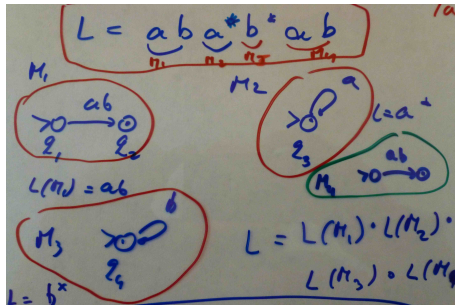 L = ab a* b* ab
M1 M2 M3 M4
M1
ab
q1 q2
L(M1) = ab
M2
a
q3
L = a*
M4
ab
M3
b
q4
L = b*
L = L(M1) · L(M2) ·
L(M3) · L(M4